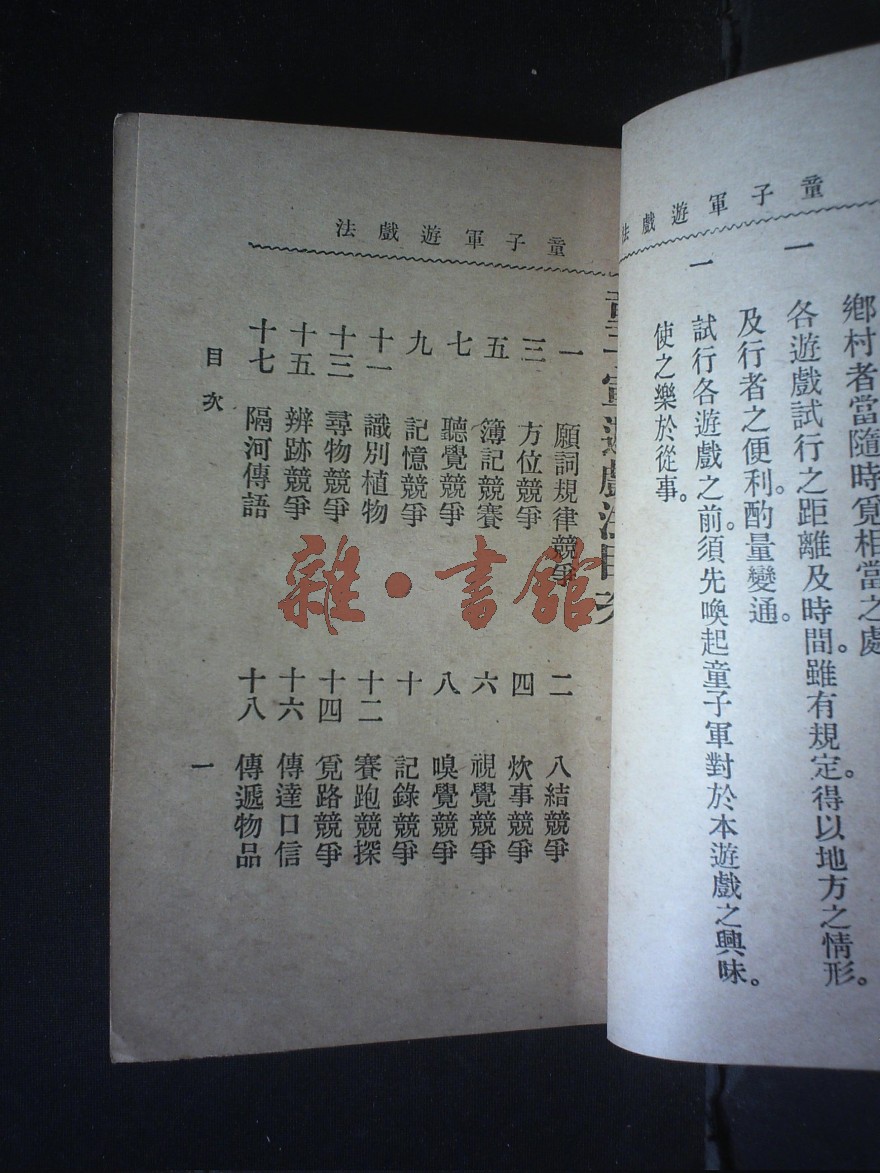 童子軍遊戲法
鄉村者當隨時覓相當之處
一 各遊戲試行之距離及時間。雖有規定。得以地方之情形。
及行者之便利。酌量變通。
一 試行各遊戲之前。須先喚起童子軍對於本遊戲之興味。
使之樂於從事。
童子軍遊戲法
童子軍遊戲法目次
一 願詞規律競爭
二 八結競爭
三 方位競爭
四 炊事競爭
五 簿記競賽
六 視覺競爭
七 聽覺競爭
八 嗅覺競爭
九 記憶競爭
十 記錄競爭
十一 識別植物
十二 賽跑競探
十三 尋物競爭
十四 覓路競爭
十五 辨跡競爭
十六 傳達口信
十七 隔河傳語
十八 傳遞物品
目次
一
雜·書館